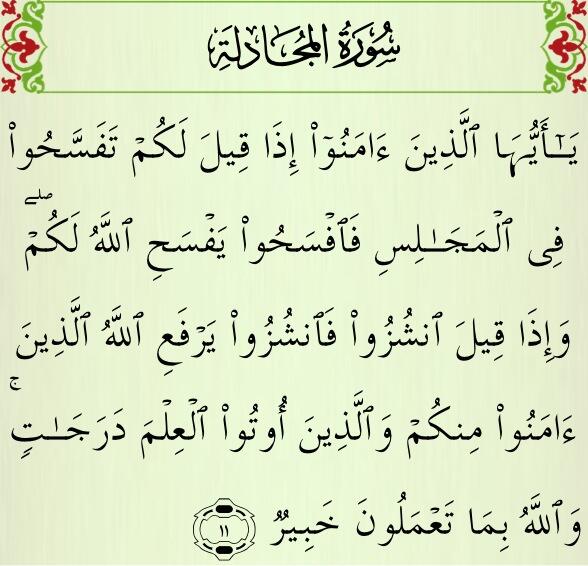 سُورَةُ المُجَادلَةِ
يَـٰٓأَيُّهَا ٱلَّذِينَ ءَامَنُوٓا۟ إِذَا قِيلَ لَكُمْ تَفَسَّحُوا۟
فِى ٱلْمَجَـٰلِسِ فَٱفْسَحُوا۟ يَفْسَحِ ٱللَّهُ لَكُمْ ۖ
وَإِذَا قِيلَ ٱنشُزُوا۟ فَٱنشُزُوا۟ يَرْفَعِ ٱللَّهُ ٱلَّذِينَ
ءَامَنُوا۟ مِنكُمْ وَٱلَّذِينَ أُوتُوا۟ ٱلْعِلْمَ دَرَجَـٰتٍ ۚ
وَٱللَّهُ بِمَا تَعْمَلُونَ خَبِيرٌ ١١